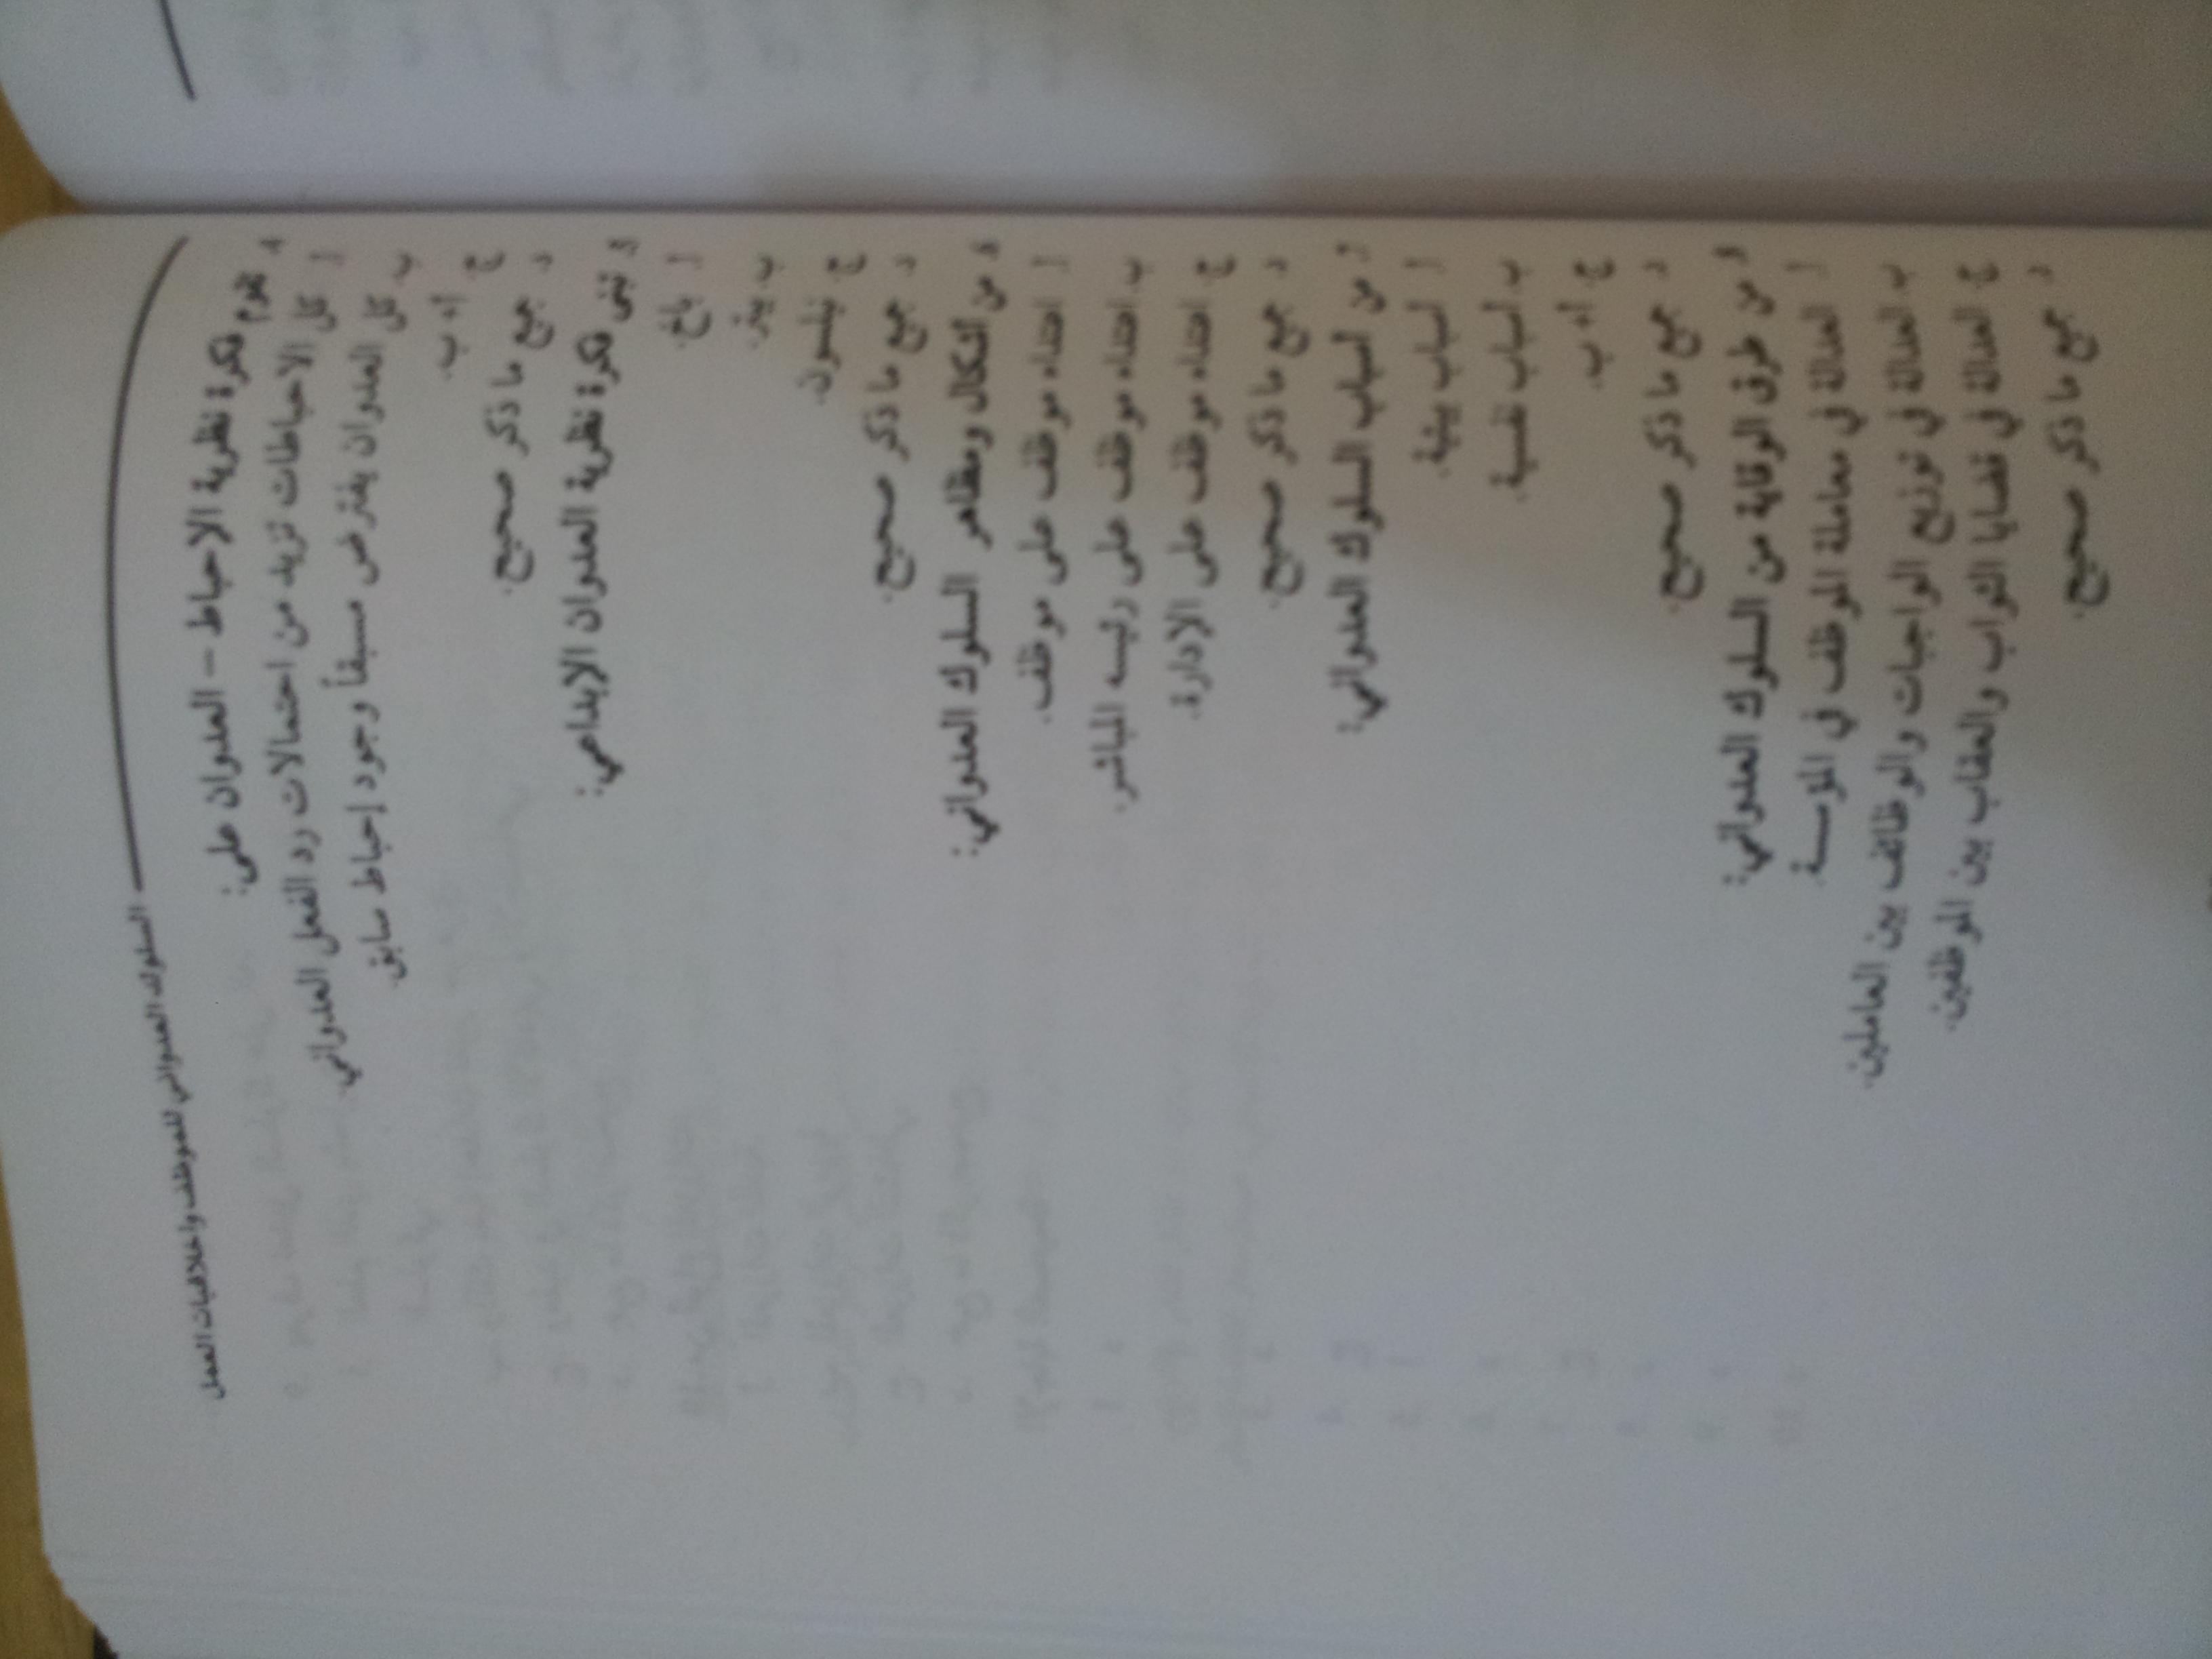 السلوك العدواني للموظف وأخلاقيات العمل
تقوم فكرة نظرية الاحباط - العدوان على:
أ. كل الاحباطات تزيد من احتمالات رد الفعل العدواني.
ب. كل العدوان يفترض مسبقاً وجود إحباط سابق.
ج. أ+ب.
د. جميع ما ذكر صحيح.
تبنى فكرة نظرية العدوان الابداعي:
أ. باخ.
ب.
ج.
د. جميع ما ذكر صحيح.
من اشكال ومظاهر السلوك العدواني:
أ. اعتداء موظف على موظف.
ب. اعتداء موظف على رئيسه المباشر.
ج. اعتداء موظف على الإدارة.
د. جميع ما ذكر صحيح.
من أسباب السلوك العدواني:
أ. أسباب بيئية.
ب. أسباب نفسية.
ج. أ+ب.
د. جميع ما ذكر صحيح.
من طرق الوقاية من السلوك العدواني:
أ. العدالة في معاملة الموظف في المؤسسة.
ب. العدالة في توزيع الواجبات والوظائف بين العاملين.
ج. العدالة في قضايا الثواب والعقاب بين الموظفين.
د. جميع ما ذكر صحيح.